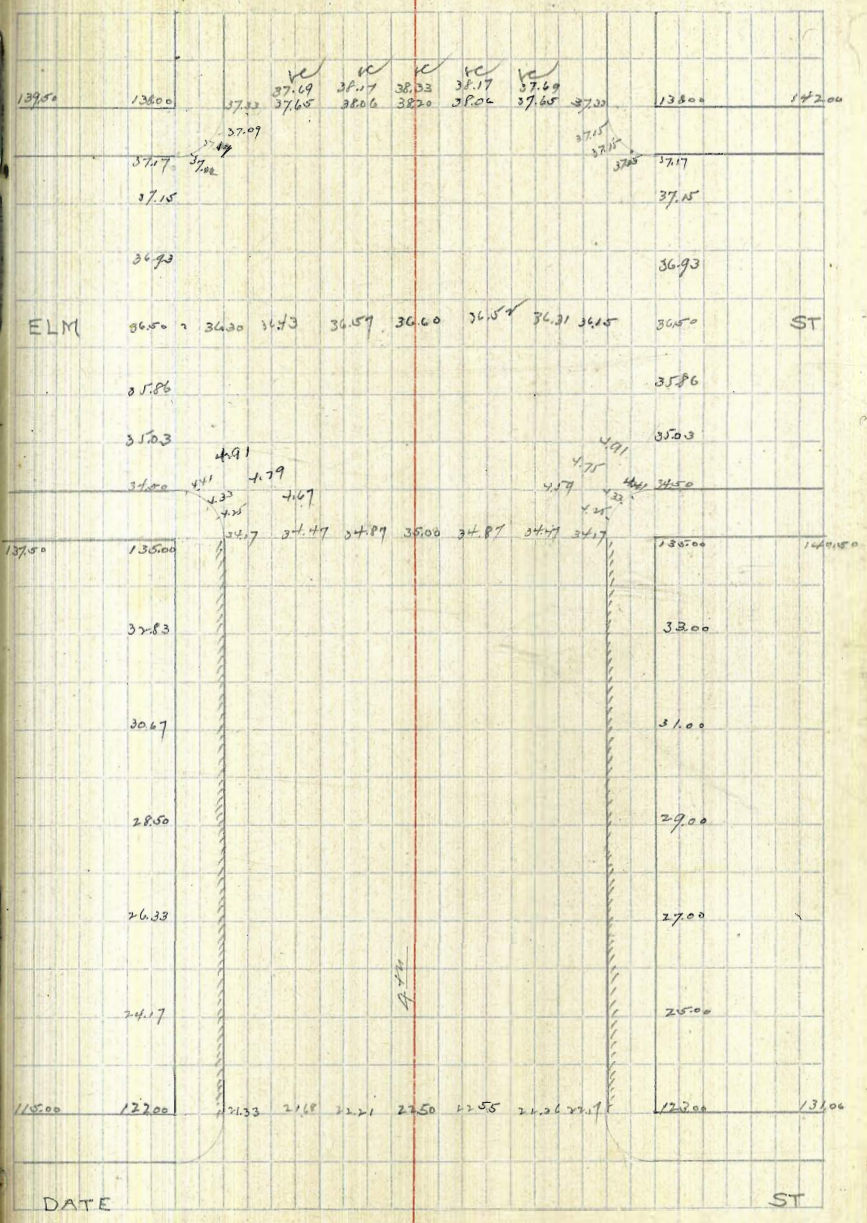 37.69 38.17 38.33 38.17 37.69
139.50 138.00 37.33 37.65 38.06 38.20 38.06 37.65 37.33 138.00 142.00
37.09 37.15
37.14 37.15
37.17 37.15 37.17
37.15 37.15
36.93 36.93
ELM 36.50 36.30 36.43 36.57 36.60 36.52 36.31 36.15 36.50 ST
35.86 35.86
35.03 4.91 4.91 35.03
4.79 4.75
34.50 4.41 4.33 4.67 4.59 4.33 4.41 34.50
4.25 4.25
34.17 34.47 34.87 35.00 34.87 34.47 34.17
137.50 135.00 135.00 140.50
32.83 33.00
30.67 31.00
28.50 29.00
26.33 27.00
4th
24.17 25.00
115.00 122.00 21.33 21.68 22.21 22.50 22.55 123.00 131.06
DATE ST